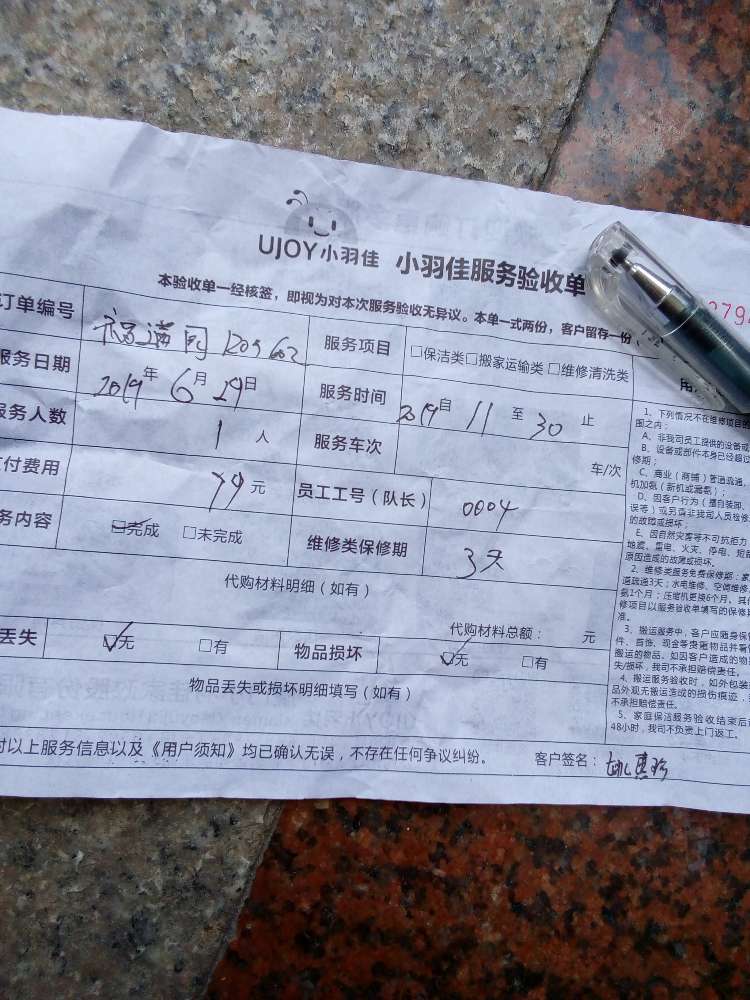 UJOY小羽佳 小羽佳服务验收单
本验收单一经核签，即视为对本次服务验收无异议。本单一式两份，客户留存一份
订单编号 福满园 服务项目 □保洁类□搬家运输类□维修清洗类
服务日期 2019年6月29日 服务时间 2019自11至30止
服务人数 1人 服务车次 车/次
付费用 79元 员工工号（队长） 0004
务内容 ☑完成 □未完成 维修类保修期 3天
代购材料明细（如有）
代购材料总额： 元
丢失 ☑无 □有 物品损坏 ☑无 □有
物品丢失或损坏明细填写（如有）
对以上服务信息以及《用户须知》均已确认无误，不存在任何争议纠纷。 客户签名：
279
用
1、下列情况不在维修项目
围之内；
A、非我司员工提供的设备或
B、设备或部件本身已经超过
修期；
C、商业（商铺）管道疏通，
机加氨（新机或漏氨）；
D、因客户行为（擅自装卸、
误等）或另请非我司人员检修
的故障或损坏；
E、因自然灾害等不可抗拒力
地震，雷电，火灾，停电，短
原因造成的故障或损坏。
2、维修类服务免费保修期：家
道疏通3天；水电维修、空调维修
氨1个月；压缩机更换6个月。其
修项目以服务验收单填写的保修
准。
3、搬运服务中，客户应随身保
件、首饰、现金等贵重物品并看
搬运的物品。如因客户造成的物
失/损坏，我司不承担赔偿责任。
4、搬运服务验收时，如外包装
品外观无搬运造成的损伤痕迹，
不承担赔偿责任。
5、家庭保洁服务验收结束后
48小时，我司不负责上门返工。